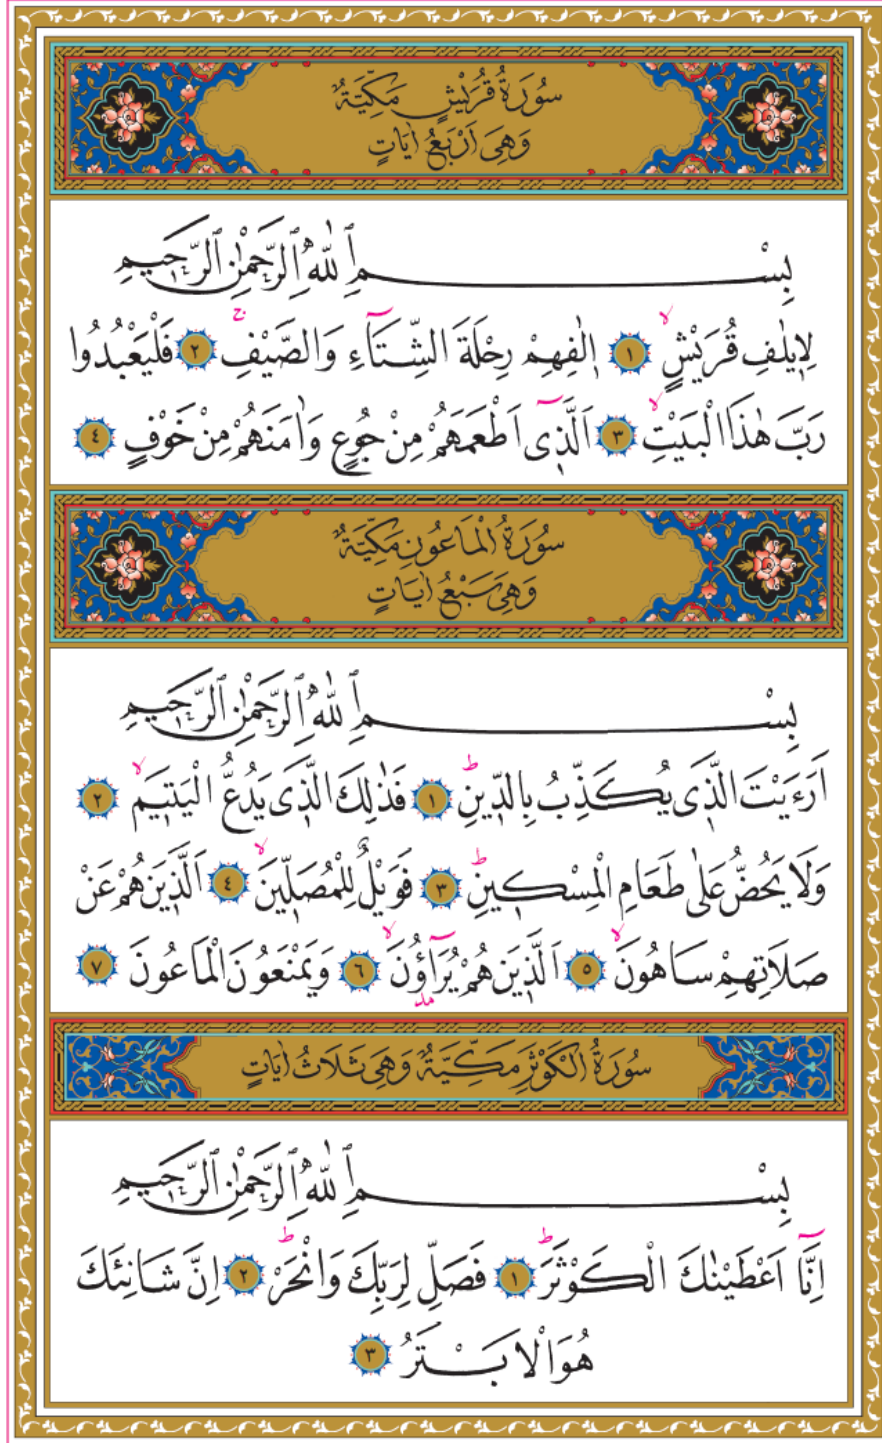 سُورَةُ قُرَيْشٍ مَكِّيَّةٌ
وَهِيَ اَرْبَعُ اٰيَاتٍ
بِسْمِ ٱللّٰهِ ٱلرَّحْمٰنِ ٱلرَّحِيمِ
لِا۪يلَافِ قُرَيْشٍۙ ﴿١﴾ ا۪لَافِهِمْ رِحْلَةَ الشِّتَٓاءِ وَالصَّيْفِۚ ﴿٢﴾ فَلْيَعْبُدُوا
رَبَّ هٰذَا الْبَيْتِۙ ﴿٣﴾ اَلَّذ۪ٓي اَطْعَمَهُمْ مِنْ جُوعٍ وَاٰمَنَهُمْ مِنْ خَوْفٍ ﴿٤﴾
سُورَةُ الْمَاعُونِ مَكِّيَّةٌ
وَهِيَ سَبْعُ اٰيَاتٍ
بِسْمِ ٱللّٰهِ ٱلرَّحْمٰنِ ٱلرَّحِيمِ
اَرَءَيْتَ الَّذ۪ي يُكَذِّبُ بِالدّ۪ينِۜ ﴿١﴾ فَذٰلِكَ الَّذ۪ي يَدُعُّ الْيَت۪يمَۙ ﴿٢﴾
وَلَا يَحُضُّ عَلٰى طَعَامِ الْمِسْك۪ينِۜ ﴿٣﴾ فَوَيْلٌ لِلْمُصَلّ۪ينَۙ ﴿٤﴾ اَلَّذ۪ينَ هُمْ عَنْ
صَلَاتِهِمْ سَاهُونَۙ ﴿٥﴾ اَلَّذ۪ينَ هُمْ يُرَٓاؤُ۫نَۙ ﴿٦﴾ وَيَمْنَعُونَ الْمَاعُونَ ﴿٧﴾
سُورَةُ الْكَوْثَرِ مَكِّيَّةٌ وَهِيَ ثَلَاثُ اٰيَاتٍ
بِسْمِ ٱللّٰهِ ٱلرَّحْمٰنِ ٱلرَّحِيمِ
اِنَّٓا اَعْطَيْنٰكَ الْكَوْثَرَۜ ﴿١﴾ فَصَلِّ لِرَبِّكَ وَانْحَرْۜ ﴿٢﴾ اِنَّ شَانِئَكَ
هُوَ الْاَبْتَرُ ﴿٣﴾